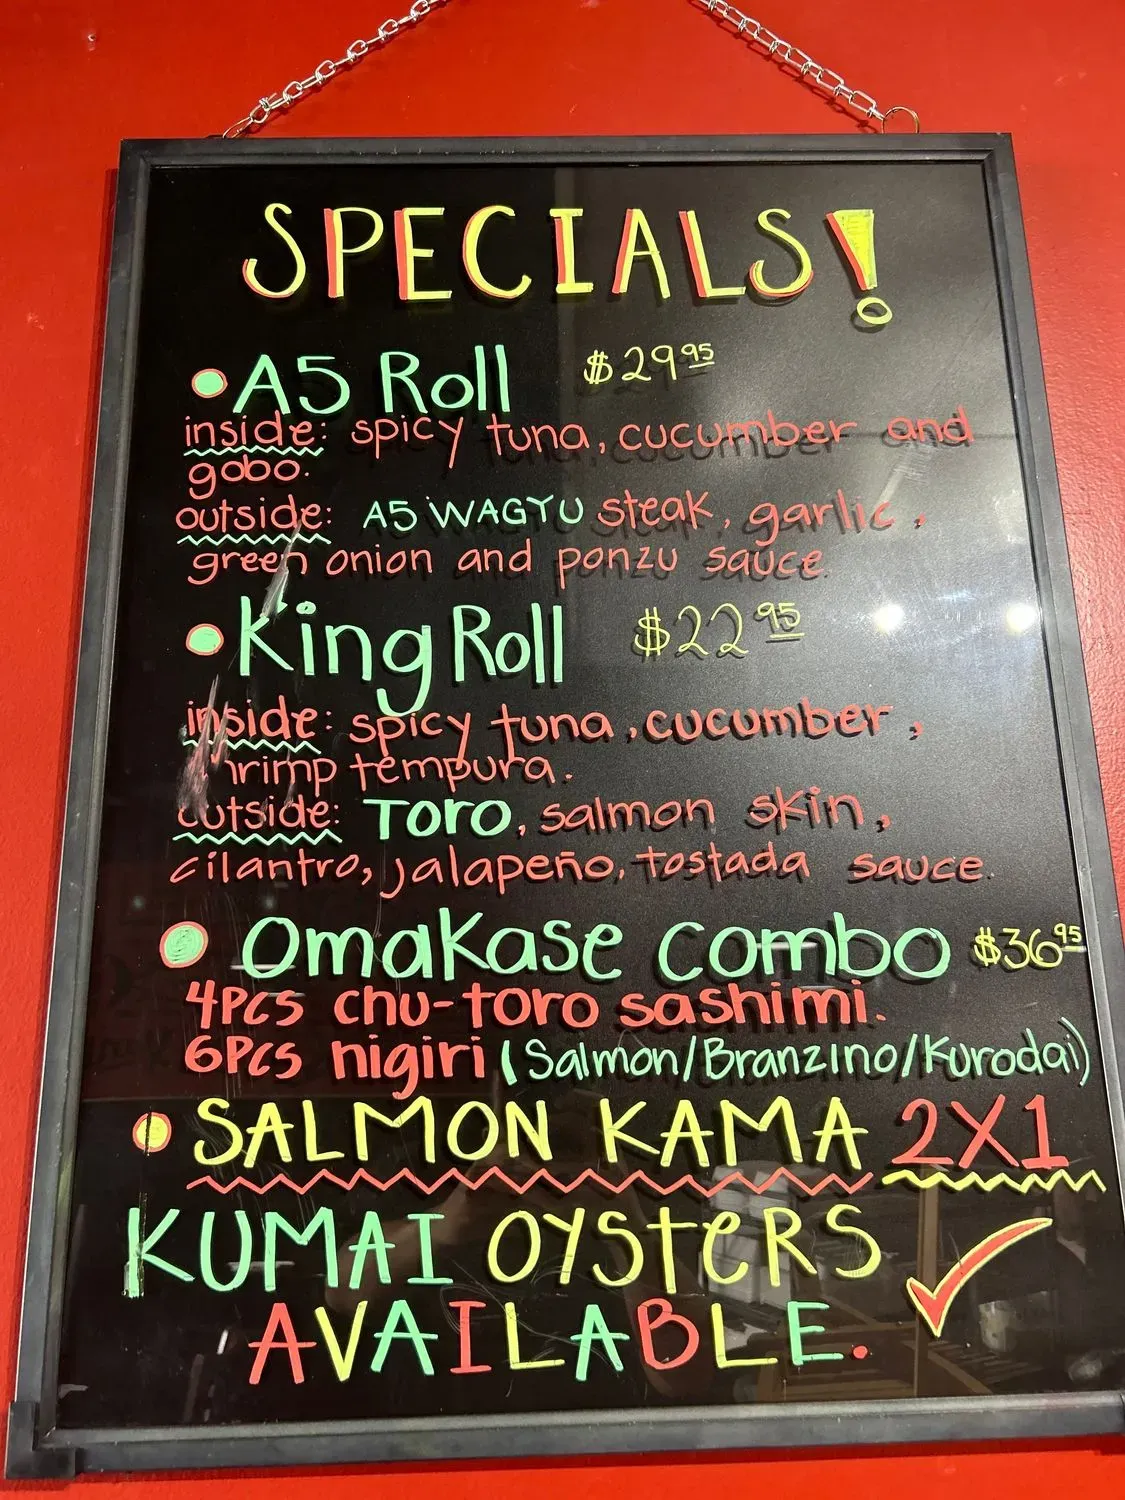 SPECIALS!
• A5 Roll $29 95
inside: spicy tuna, cucumber and
gobo.
outside: A5 WAGYU steak, garlic,
green onion and ponzu sauce.
• King Roll $22 95
inside: spicy tuna, cucumber,
shrimp tempura.
outside: TORO, salmon skin,
cilantro, jalapeño, tostada sauce.
• Omakase combo $36 95
4PCS chu-toro sashimi.
6PCS nigiri (Salmon/Branzino/Kurodai)
• SALMON KAMA 2X1
KUMAI OYSTERS
AVAILABLE.